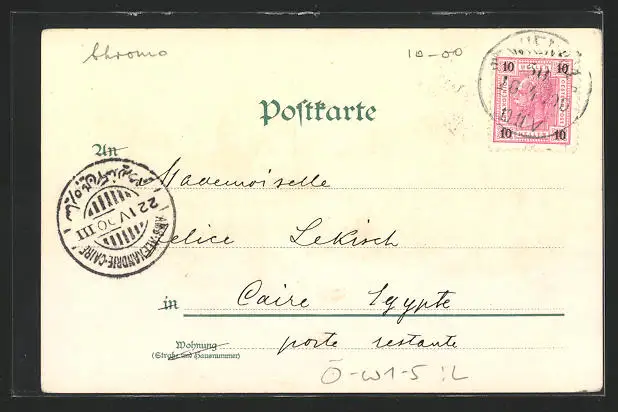 Chromo 10-00
10 10
10 10
Postkarte
An
Mademoiselle
22 IV 00 III
AMB. ALEXANDRIE-CAIRE
elice Lekisch
in Caire Egypte
Wohnung
(Straße und Hausnummer)
poste restante
Ö-W1-5 :L